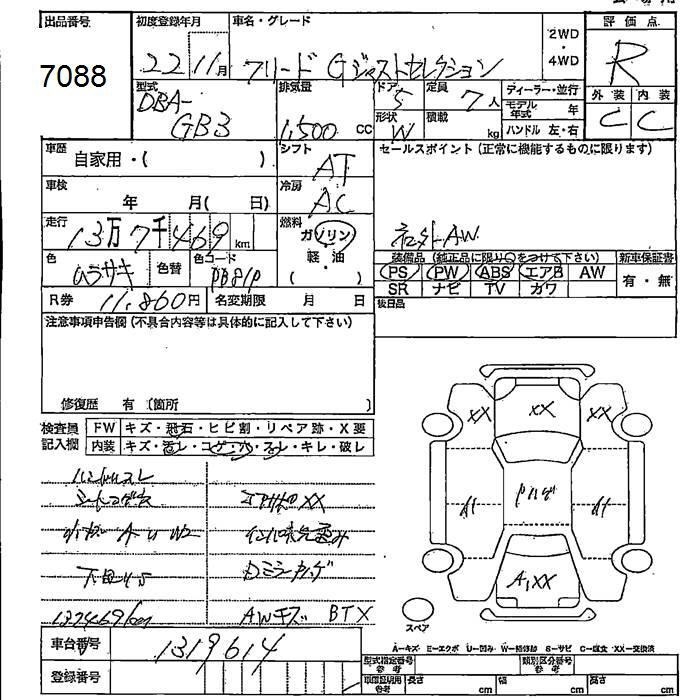 出品番号
7088
初度登録年月
22 11月
車名・グレード
フリード Gジャストセレクション
2WD
・
4WD
評価点
R
外装 内装
C C
型式
DBA-
GB3
排気量
1,500 CC
ドア
5
定員
7人
形状
W
積載
kg
ディーラー・並行
モデル年式 年
ハンドル 左・右
車歴
自家用・( )
シフト
AT
車検
年 月( 日)
冷房
AC
走行
13万7千469km
燃料
ガソリン
軽油
( )
色
ムラサキ
色替
色コード
PB81P
R券 11,860円
名変期限 月 日
セールスポイント(正常に機能するものに限ります)
社外AW
装備品(純正品に限り○をつけて下さい)
PS PW ABS エアB AW
SR ナビ TV カワ
新車保証書
有・無
後日品
注意事項申告欄(不具合内容等は具体的に記入して下さい)
修復歴 有〔箇所 〕
検査員記入欄
FW キズ・飛石・ヒビ割・リペア跡・X要
内装 キズ・汚レ・コゲ・穴・スレ・キレ・破レ
ハンドルスレ
シートコゲ穴
エアB XX
A U W2
インパネ
Dミラーキズ
下回り
137469km
AWキズ BTX
XX
XX
XX
A1XX
スペア
車台番号
1319614
登録番号
A-キズ E-エクボ U-凹み W-補修跡 S-サビ C-腐食 XX-交換済
型式指定番号 参考
類別区分番号 参考
車庫証明用 参考
長さ cm 幅 cm 高さ cm